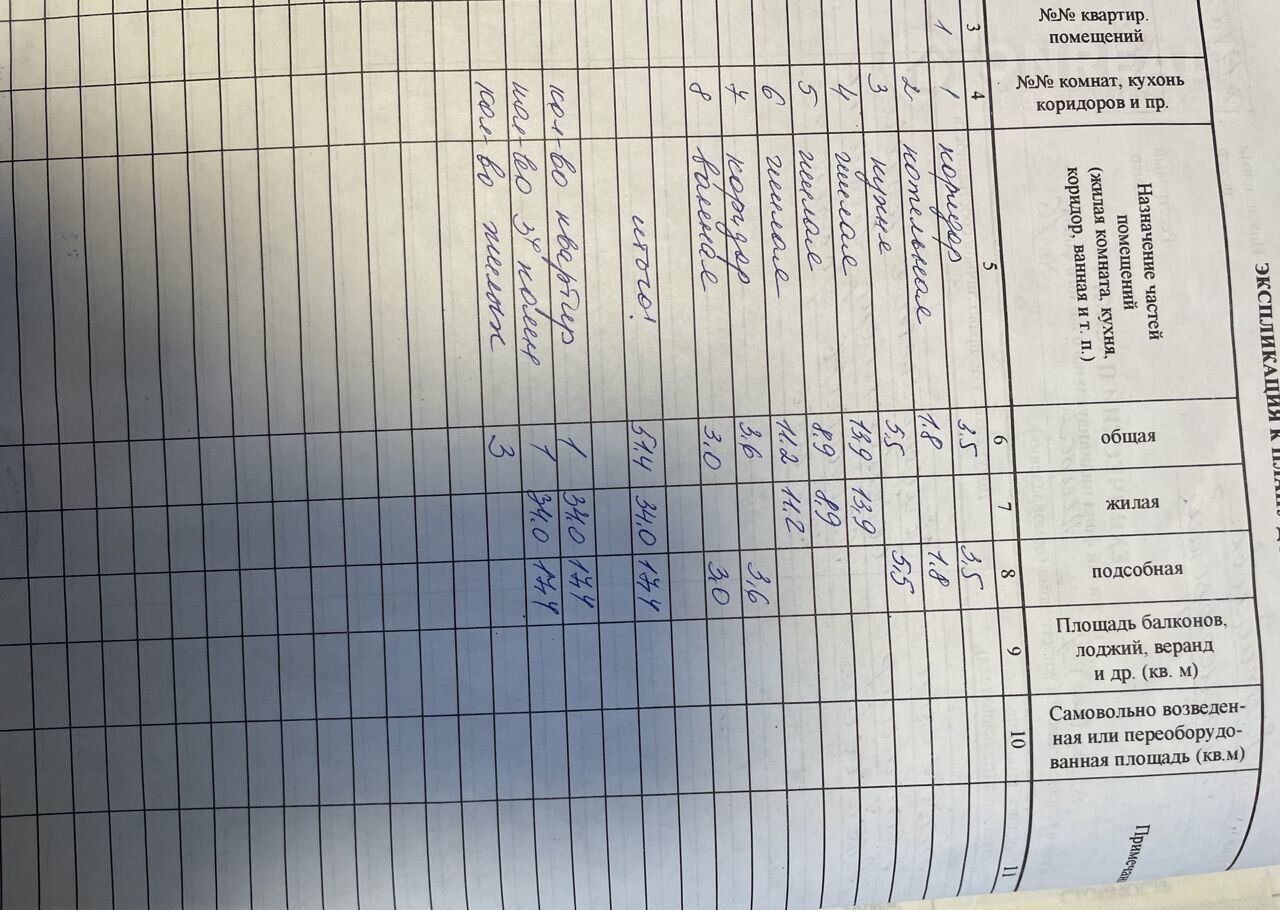 ЭКСПЛИКАЦИЯ К ПЛАНУ
№№ квартир. помещений
№№ комнат, кухонь коридоров и пр.
Назначение частей помещений (жилая комната. кухня, коридор, ванная и т. п.)
общая
жилая
подсобная
Площадь балконов, лоджий, веранд и др. (кв. м)
Самовольно возведен-ная или переоборудо-ванная площадь (кв.м)
Примечан
3 4 5 6 7 8 9 10 11
1 1 коридор 3.5 3.5
2 котельная 1.8 1.8
3 кухне 5,5 5,5
4 жилая 13,9 13,9
5 жилая 8,9 8,9
6 жилая 11.2 11.2
7 коридор 3,6 3,6
8 ванная 3,0 3,0
итого: 51,4 34,0 17,4
кол-во квартир 1 34,0 17,4
кол-во 3х комн 1 34.0 17,4
кол-во жилых 3